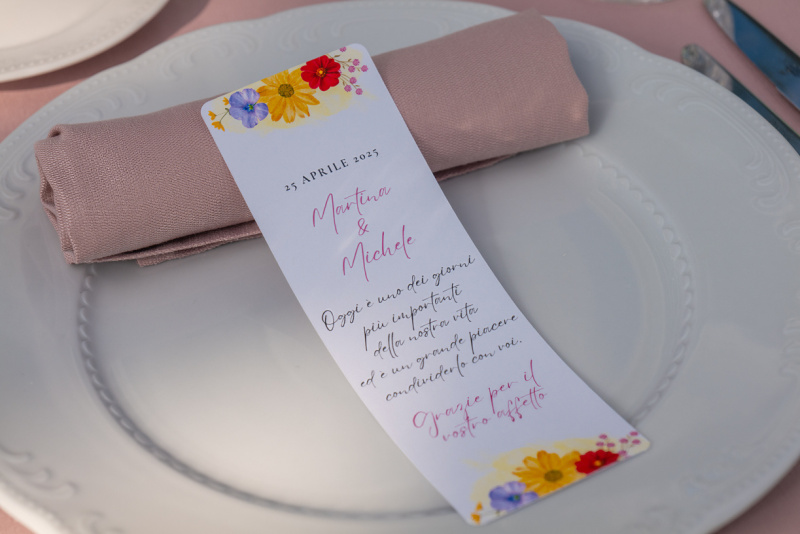 25 APRILE 2025
Martina
&
Michele
Oggi è uno dei giorni
più importanti
della nostra vita
ed è un grande piacere
condividerlo con voi.
Grazie per il
vostro affetto